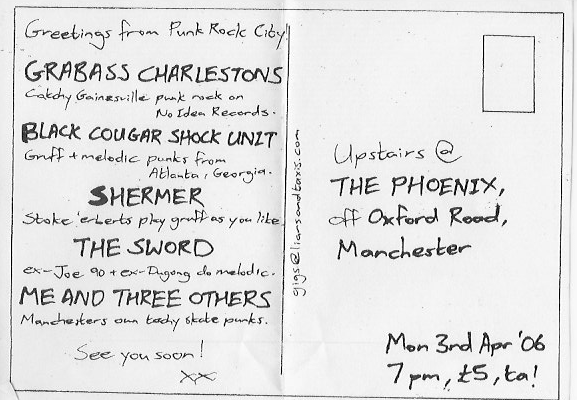 Greetings from Punk Rock City!
GRABASS CHARLESTONS
Catchy Gainesville punk rock on
No Idea Records.
BLACK COUGAR SHOCK UNIT
Gruff + melodic punks from
Atlanta, Georgia.
SHERMER
Stoke 'erberts play gruff as you like
THE SWORD
ex-Joe 90 + ex-Dugong do melodic.
ME AND THREE OTHERS
Manchesters own techy skate punks.
See you soon!
xx
gigs@liarsandtaxis.com
Upstairs @
THE PHOENIX,
off Oxford Road,
Manchester
Mon 3rd Apr '06
7pm, £5, ta!